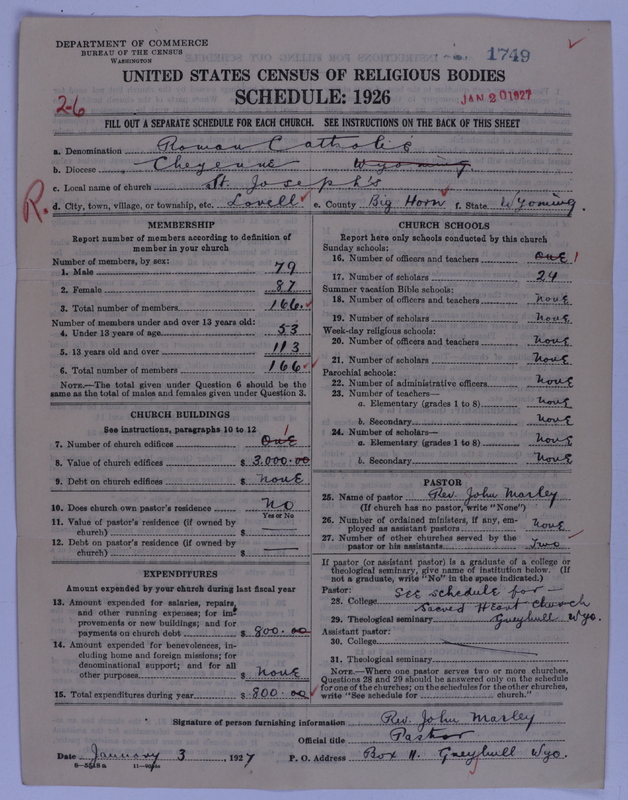 DEPARTMENT OF COMMERCE
BUREAU OF THE CENSUS
WASHINGTON
1749
UNITED STATES CENSUS OF RELIGIOUS BODIES
SCHEDULE: 1926
2-6
JAN 20 1927
FILL OUT A SEPARATE SCHEDULE FOR EACH CHURCH. SEE INSTRUCTIONS ON THE BACK OF THIS SHEET
a. Denomination Roman Catholic
b. Diocese Cheyenne Wyoming.
c. Local name of church St. Joseph's
R.
d. City, town, village, or township, etc. Lovell e. County Big Horn f. State Wyoming.
MEMBERSHIP
Report number of members according to definition of
member in your church
Number of members, by sex:
1. Male 79
2. Female 87
3. Total number of members 166
Number of members under and over 13 years old:
4. Under 13 years of age 53
5. 13 years old and over 113
6. Total number of members 166
NOTE.—The total given under Question 6 should be the
same as the total of males and females given under Question 3.
CHURCH BUILDINGS
See instructions, paragraphs 10 to 12
7. Number of church edifices One 1
8. Value of church edifices $ 3.000.00
9. Debt on church edifices $ None
10. Does church own pastor's residence No
Yes or No
11. Value of pastor's residence (if owned by
church) $ —
12. Debt on pastor's residence (if owned by
church) $ —
EXPENDITURES
Amount expended by your church during last fiscal year
13. Amount expended for salaries, repairs,
and other running expenses; for im-
provements or new buildings; and for
payments on church debt $ 800.00
14. Amount expended for benevolences, in-
cluding home and foreign missions; for
denominational support; and for all
other purposes $ None
15. Total expenditures during year $ 800.00
CHURCH SCHOOLS
Report here only schools conducted by this church
Sunday schools:
16. Number of officers and teachers One 1
17. Number of scholars 24
Summer vacation Bible schools:
18. Number of officers and teachers None
19. Number of scholars None
Week-day religious schools:
20. Number of officers and teachers None
21. Number of scholars None
Parochial schools:
22. Number of administrative officers None
23. Number of teachers—
a. Elementary (grades 1 to 8) None
b. Secondary None
24. Number of scholars—
a. Elementary (grades 1 to 8) None
b. Secondary None
PASTOR
25. Name of pastor Rev. John Marley
(If church has no pastor, write "None")
26. Number of ordained ministers, if any, em-
ployed as assistant pastors None
27. Number of other churches served by the
pastor or his assistants Two
If pastor (or assistant pastor) is a graduate of a college or
theological seminary, give name of institution below. (If
not a graduate, write "No" in the space indicated.)
Pastor:
28. College See schedule for —
Sacred Heart Church
29. Theological seminary Greybull Wyo.
Assistant pastor:
30. College
31. Theological seminary
NOTE.—Where one pastor serves two or more churches,
Questions 28 and 29 should be answered only on the schedule
for one of the churches; on the schedules for the other churches,
write "See schedule for church."
Signature of person furnishing information Rev. John Marley
Official title Pastor
Date January 3, 1927 P. O. Address Box H. Greybull Wyo.